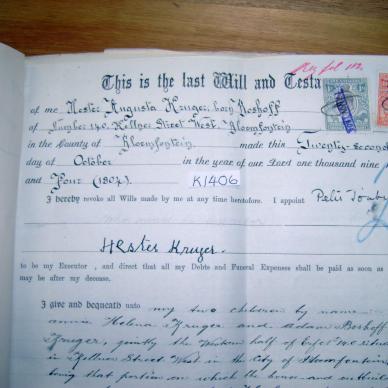 Reg fol 112
This is the last Will and Testa
of me Hester Augusta Kruger, born Boshoff
of Number 140, Kellner Street West, Bloemfontein
in the County of Bloemfontein, made this Twenty-second
day of October in the year of our Lord one thousand nine
and Four (1904)
K1406
I hereby revoke all Wills made by me at any time heretofore. I appoint
Hester Kruger.
to be my Executor, and direct that all my Debts and Funeral Expenses shall be paid as soon as
may be after my decease.
I give and bequeath unto my two children by name
Helena Kruger and Adam Boshoff
Kruger, jointly the Western half of Erf No 140 situa
in Kellner Street West in the City of Bloemfontein
being that portion on which the house and